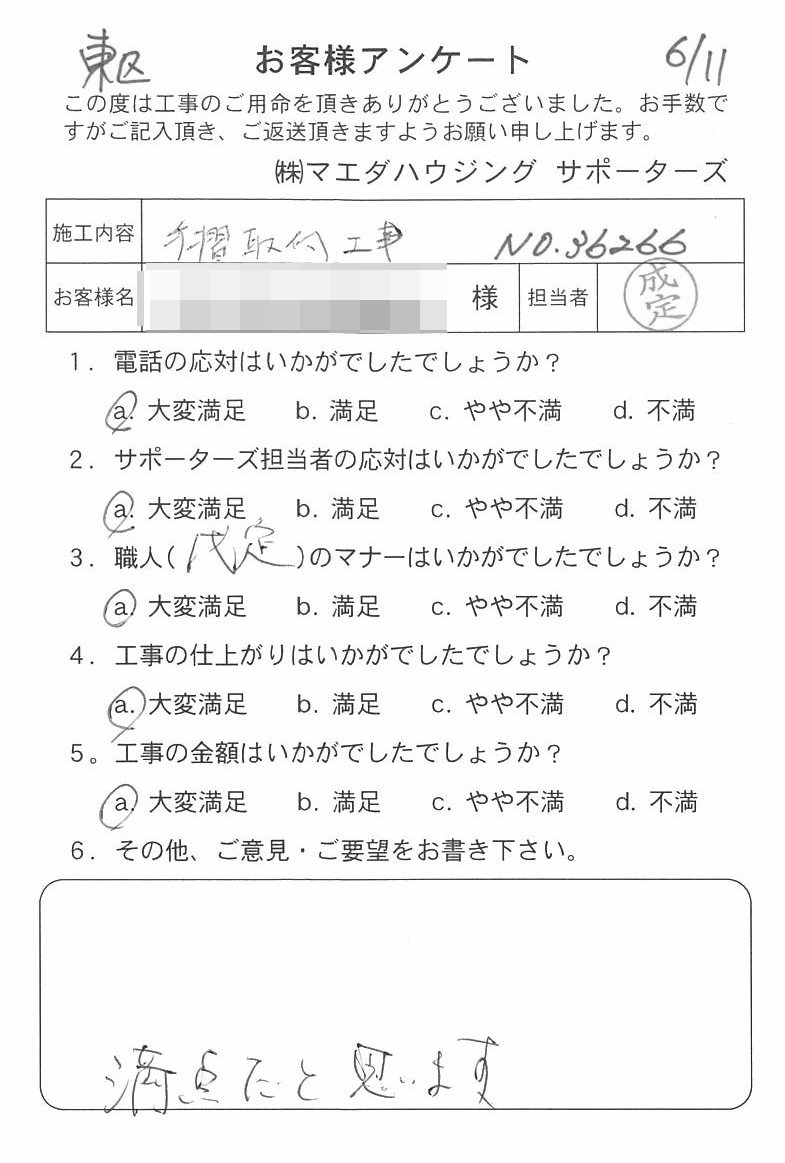 東区 お客様アンケート 6/11
この度は工事のご用命を頂きありがとうございました。お手数で
すがご記入頂き、ご返送頂きますようお願い申し上げます。
㈱マエダハウジング サポーターズ
施工内容 手摺取付工事 NO.36266
お客様名 様 担当者 成定
1. 電話の応対はいかがでしたでしょうか？
a. 大変満足 b. 満足 c. やや不満 d. 不満
2. サポーターズ担当者の応対はいかがでしたでしょうか？
a. 大変満足 b. 満足 c. やや不満 d. 不満
3. 職人(成定)のマナーはいかがでしたでしょうか？
a. 大変満足 b. 満足 c. やや不満 d. 不満
4. 工事の仕上がりはいかがでしたでしょうか？
a. 大変満足 b. 満足 c. やや不満 d. 不満
5。工事の金額はいかがでしたでしょうか？
a. 大変満足 b. 満足 c. やや不満 d. 不満
6. その他、ご意見・ご要望をお書き下さい。
満点だと思います